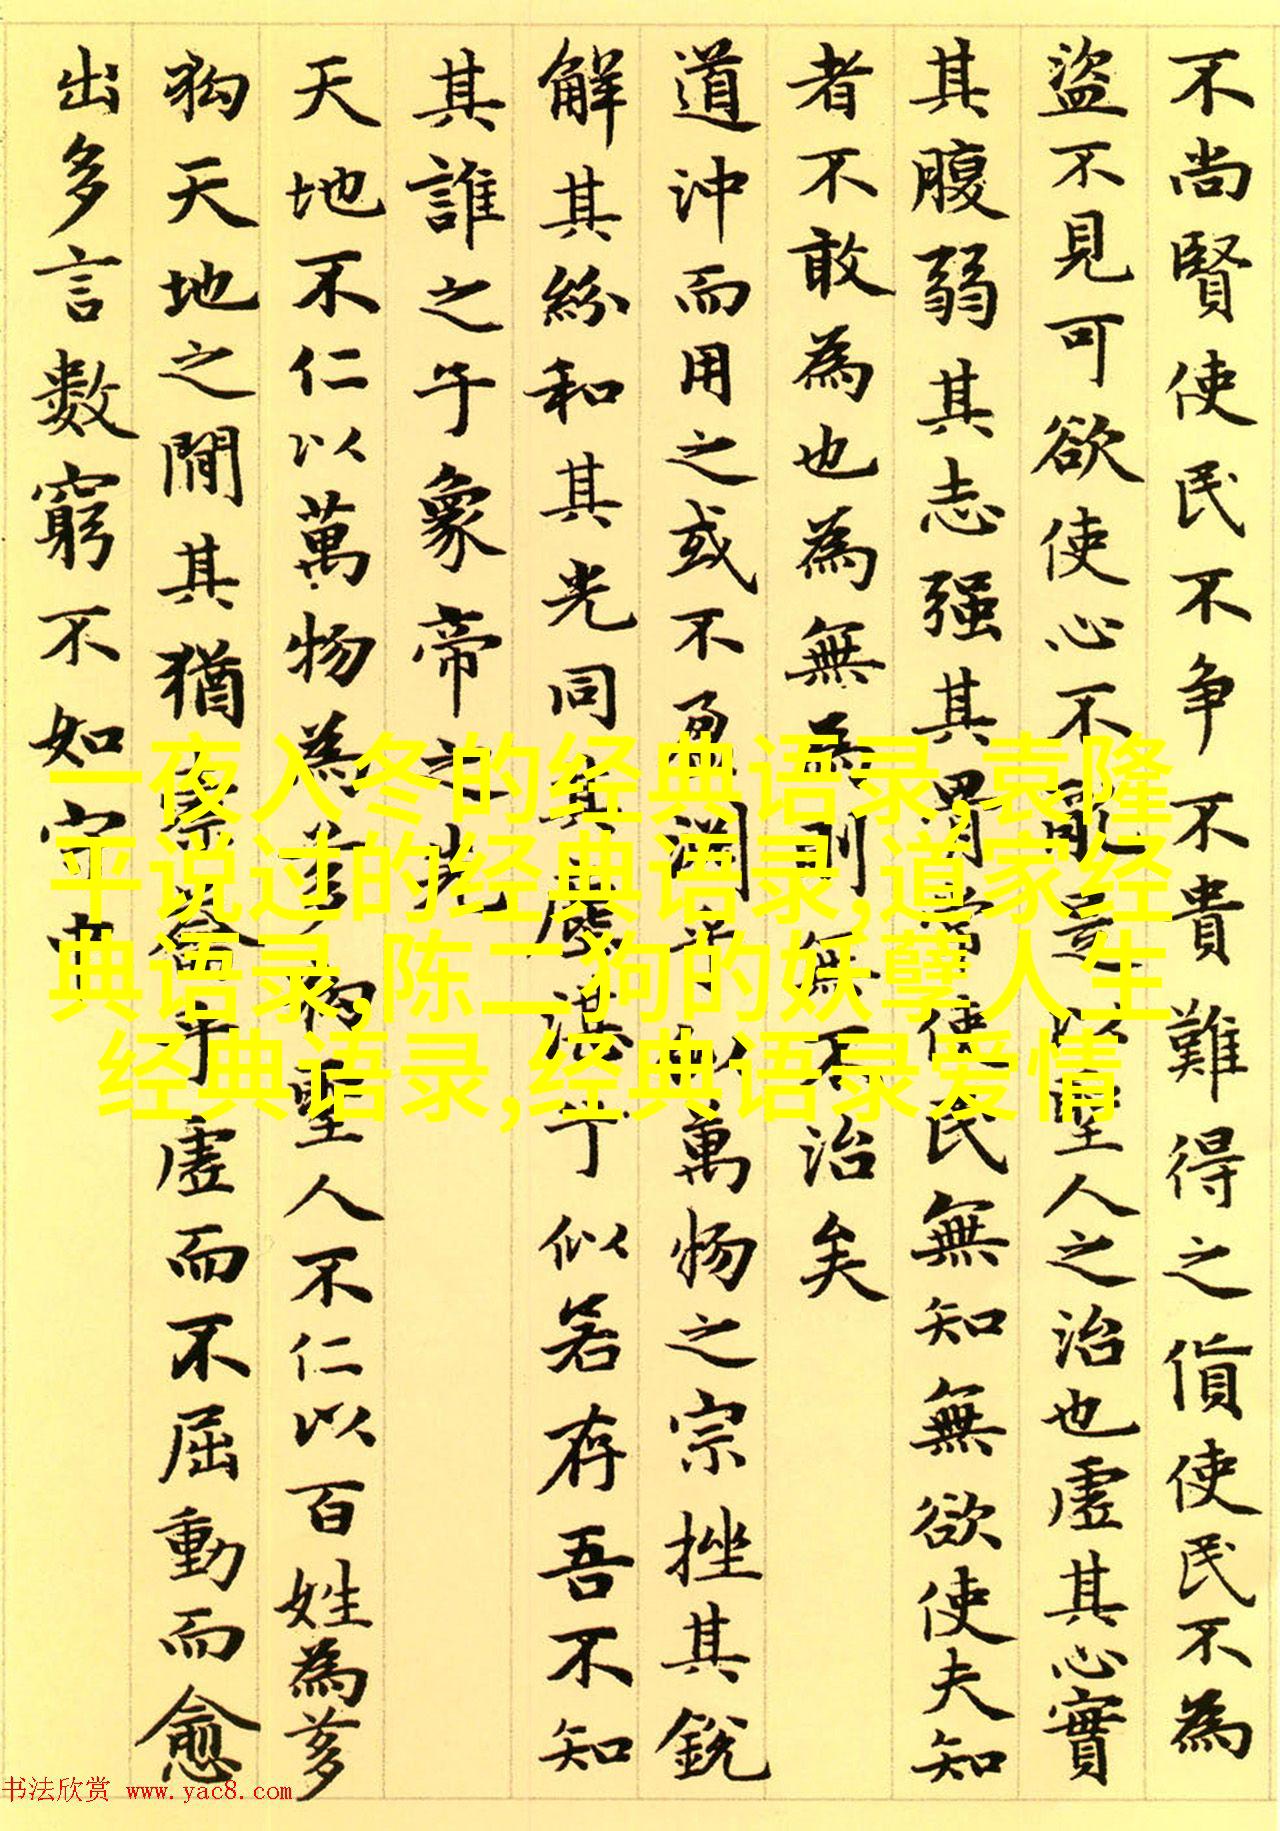 不尚賢使民不争不貴難得之貨使民不為
盜不見可欲使心不亂是以聖人之治也虛其心實
其腹弱其志强其骨常使民無知無欲使夫知
者不敢為也為無為則無不治矣
道沖而用之或不盈渊乎似萬物之宗挫其銳
解其紛和其光同其塵湛乎似若存吾不知
其誰之子象帝之先
天地不仁以萬物為芻狗聖人不仁以百姓為芻
狗天地之間其猶橐籥乎虛而不屈動而愈
出多言數窮不如守中
一夜入冬的经典语录,袁隆
平说过的经典语录,道家经
典语录,陈二狗的妖孽人生
经典语录,经典语录爱情
书法欣赏 www.yac8.com